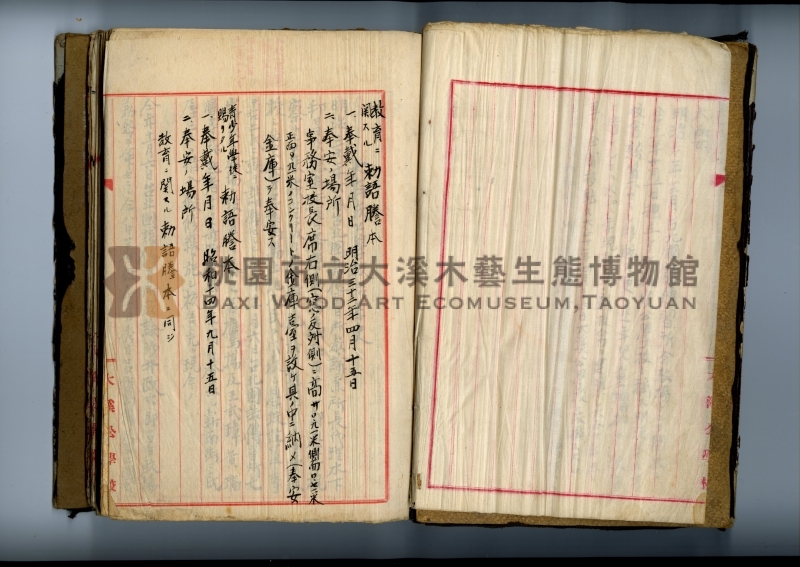 教育ニ
関スル 勅語謄本
一、奉戴年月日 明治三十二年四月十五日
二、奉安ノ場所
事務室校長席右側(窓ノ反対側)ニ高サ
正面
コンクリートノ金庫
ヲ設ケ其ノ中ニ納メ(奉安
金庫)ヲ奉安ス
青少年学徒ニ
賜リタル 勅語謄本
一、奉戴年月日 昭和十四年九月十五日
二、奉安ノ場所
教育ニ関スル勅語謄本ニ同ジ
大溪公學校
大溪公學校
桃園市立大溪木藝生態博物館
Daxi Wood Art Ecomuseum,Taoyuan